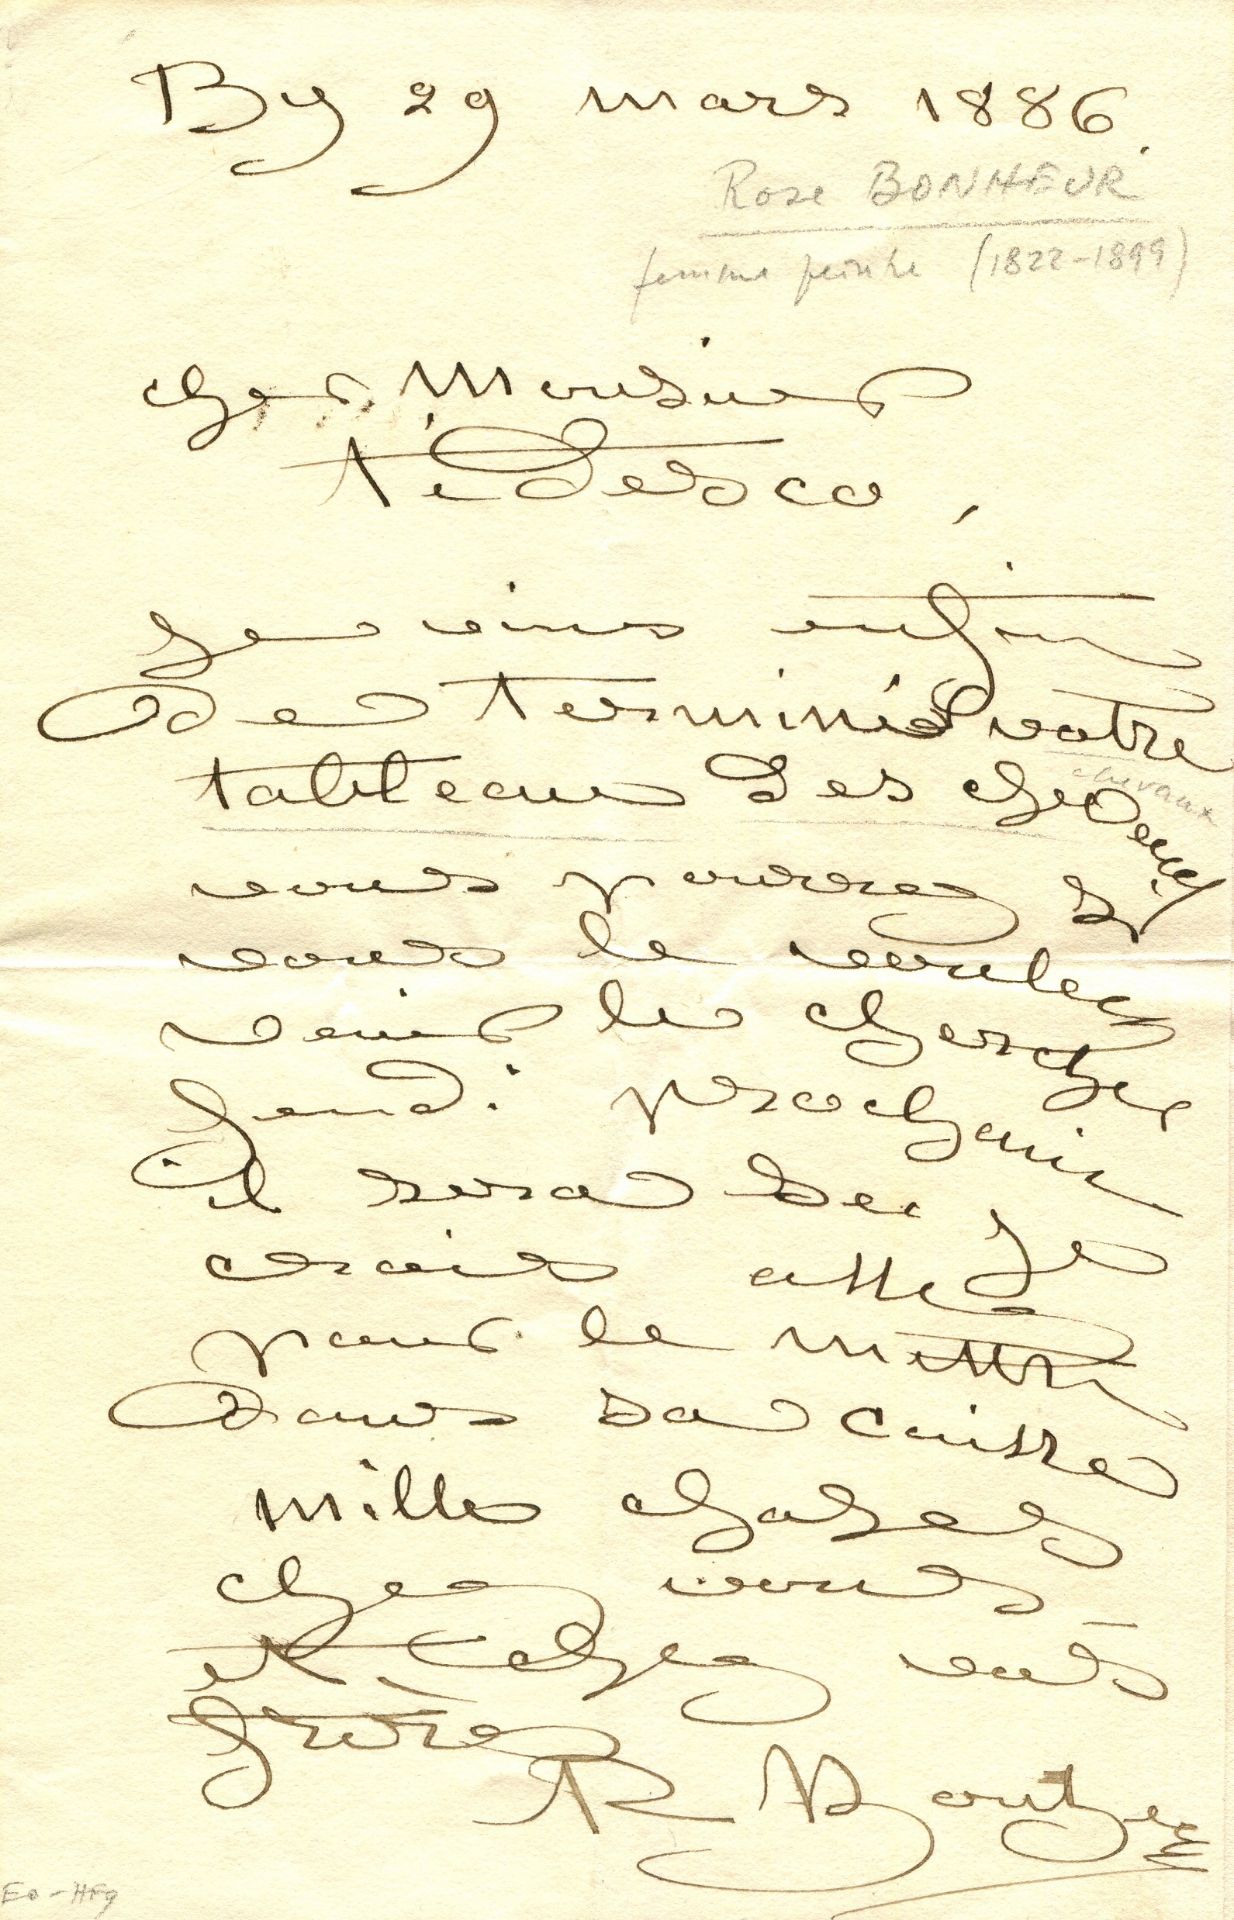 By 29 mars 1886.
Rosa BONHEUR
femme peintre (1822-1899)
cher Monsieur
Tedesco,
Je viens enfin
de terminé votre
chevaux
tableau des chevaux
vous pourrez si
vous le voulez
venir le chercher
jeudi prochain
il sera sec je
crois assé
pour le mettre
dans sa caisse
mille choses
chez vous
et chez vos
frères
R Bonheur
Eo-HFg